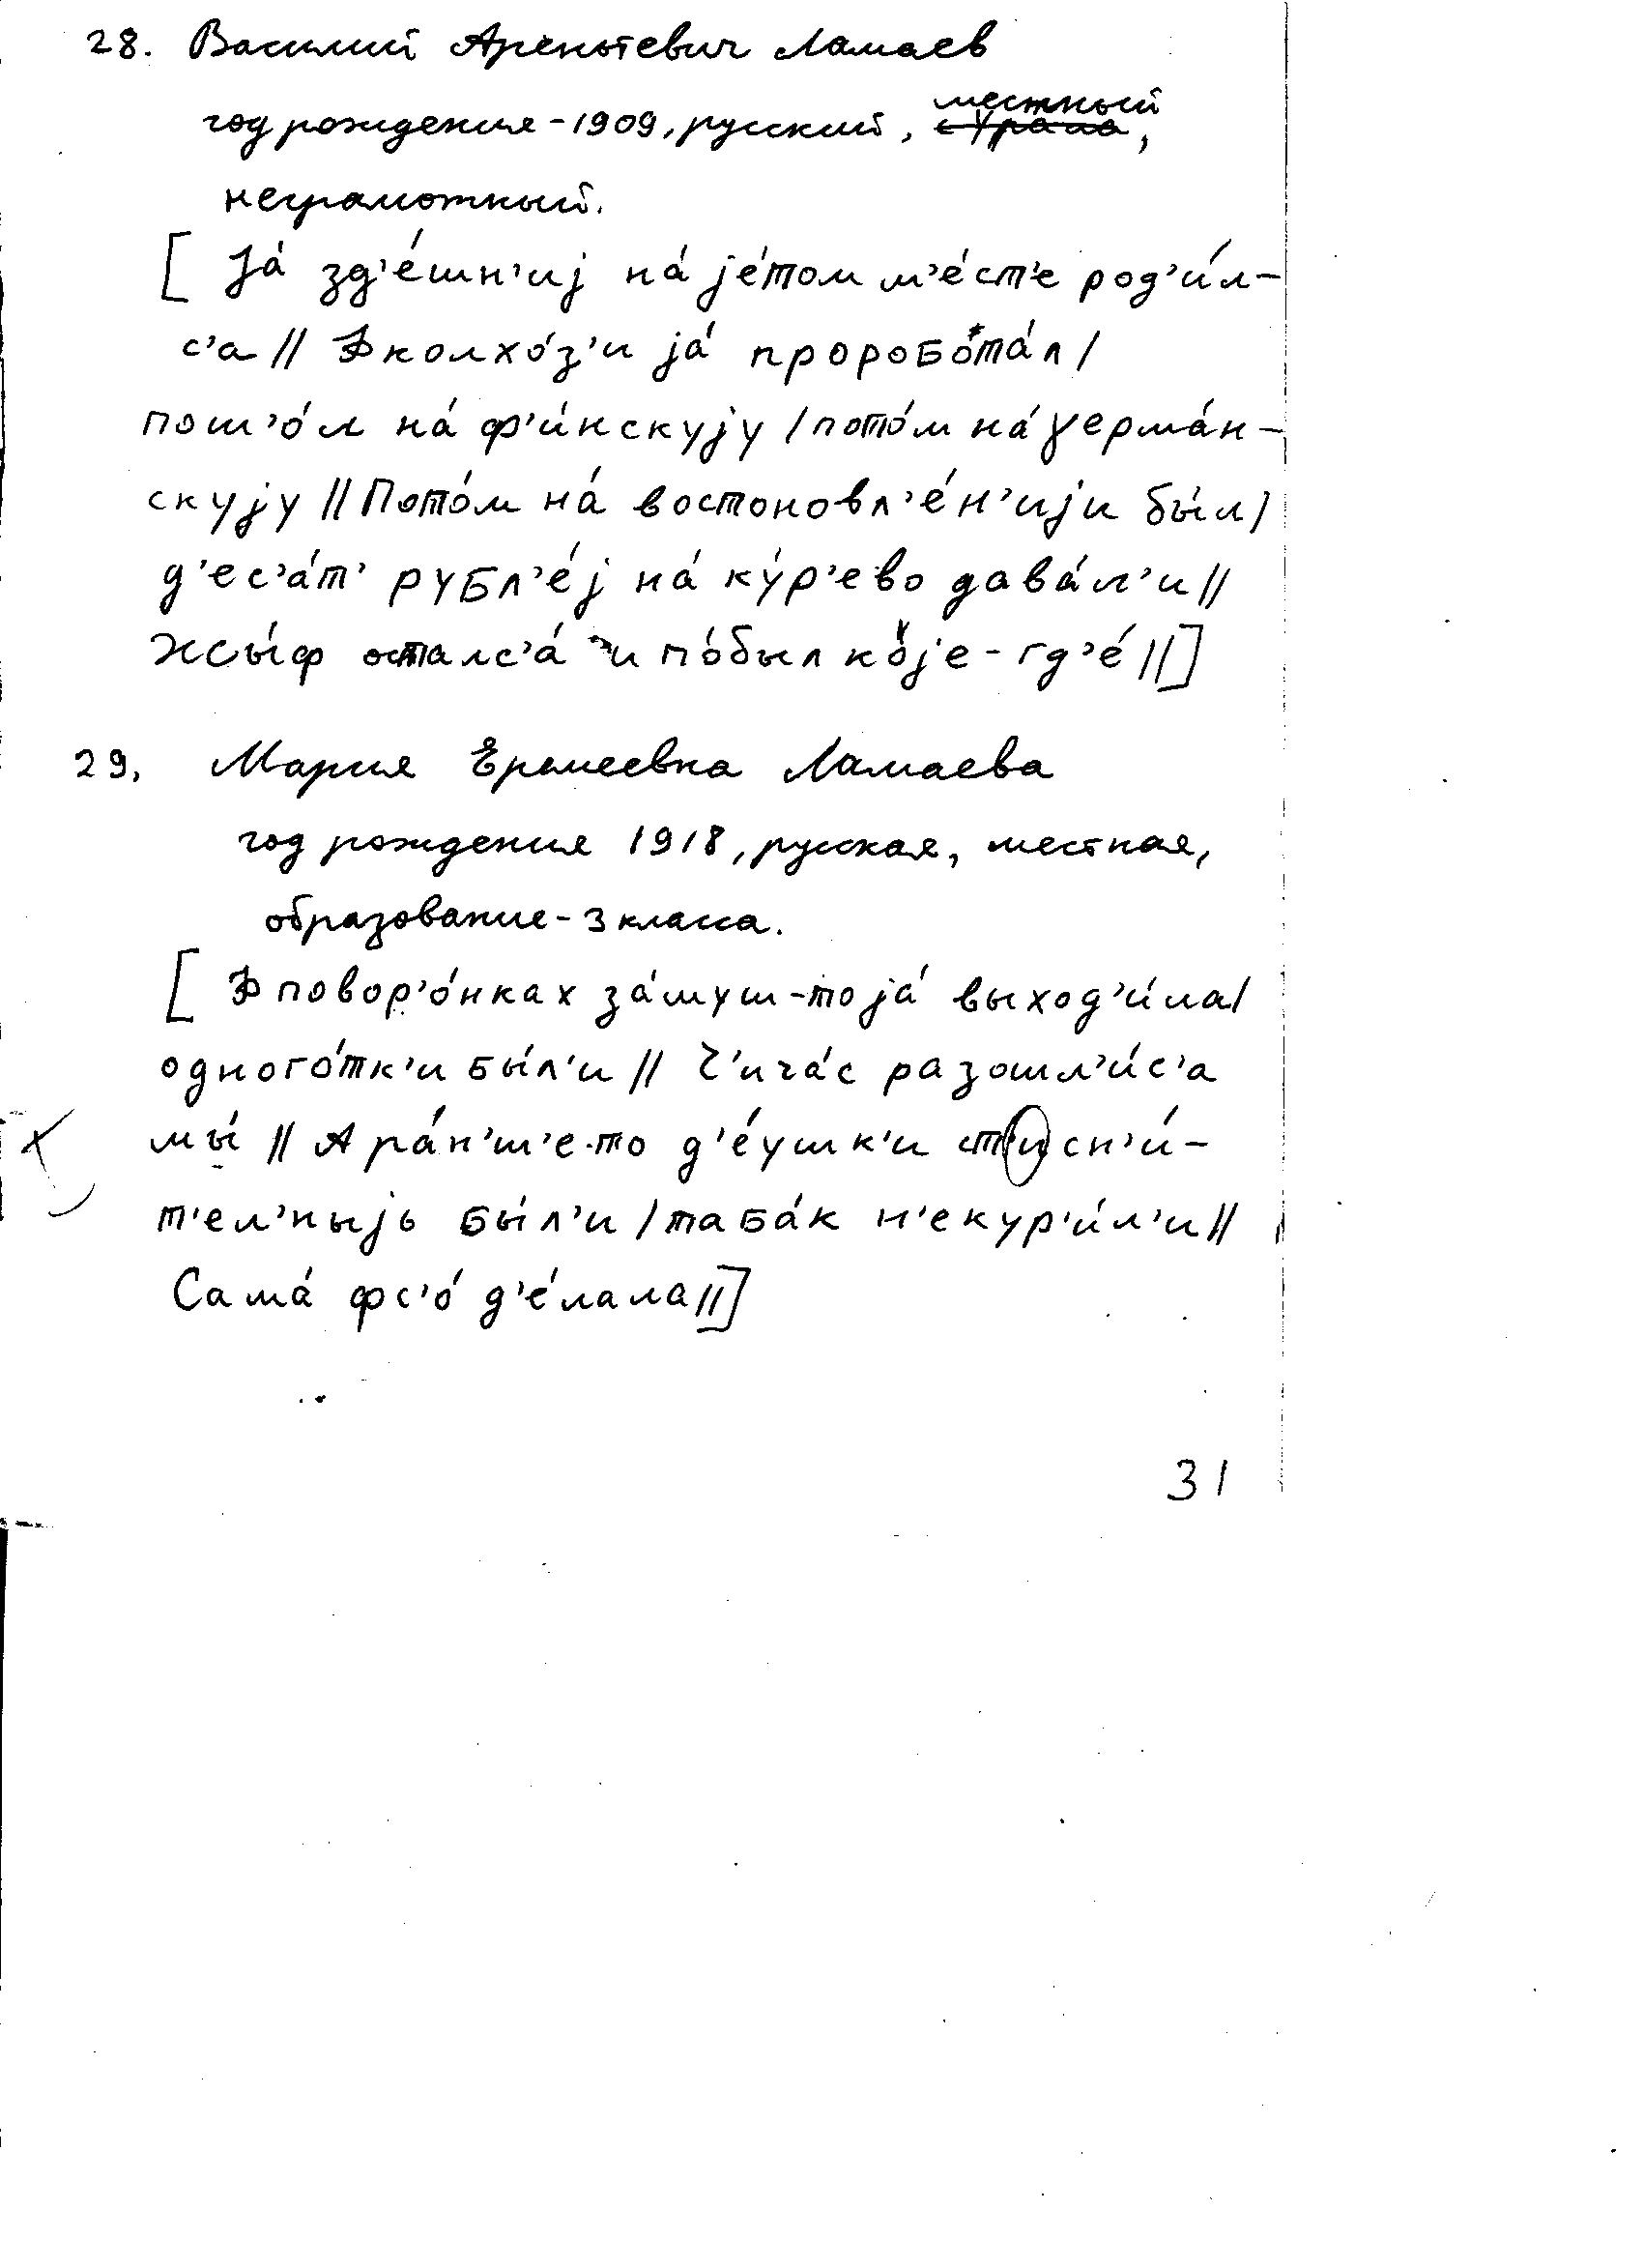 28. Василий Арентевич Ламаев
год рождения - 1909, русский, местный,
неграмотный.
[ Jа́ зд'е́шн'иj на́ jе́том м'е́ст'е род'и́л-
с'а // Ф колхо́з'и jа́ проробота́л /
пош'о́л на́ ф'и́нскуjу / пото́м на́ γерма́н-
скуjу // Пото́м на́ востоновл'е́н'иjи бы́л /
д'ес'а́т' рубл'е́j на́ ку́р'ево дава́л'и //
Жы́ф осталс'а́ и по́был коjе-гд'е́ // ]
29. Мария Ермеевна Ламаева
год рождения 1918, русская, местная,
образование - 3 класса.
[ Ф повор'о́нках за́муш-то jа́ выход'и́ла /
одного́тк'и бы́л'и // Ч'ича́с разошл'и́с'а
мы́ // А ра́н'ш'е-то д'е́ушк'и стисн'и́-
т'ел'ныjь бы́л'и / таба́к н'екур'и́л'и //
Сама́ фс'о́ д'е́лала // ]
31